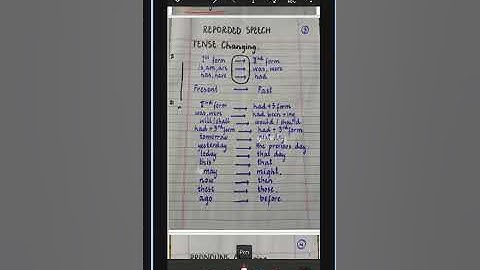 REPORDED SPEECH ③
TENSE Changing.
1st form → 2nd form
is, am, are → was, were
has, have → had
Present → Past
IInd form → had + 3 form
was, were → had been + ing
will/shall → would/should
had + 3rd form → had + 3rd form
tomorrow → next day
yesterday → the previous day
Today → that day
this → that
may → might.
now → then
these → those.
ago → before.
④
Pen